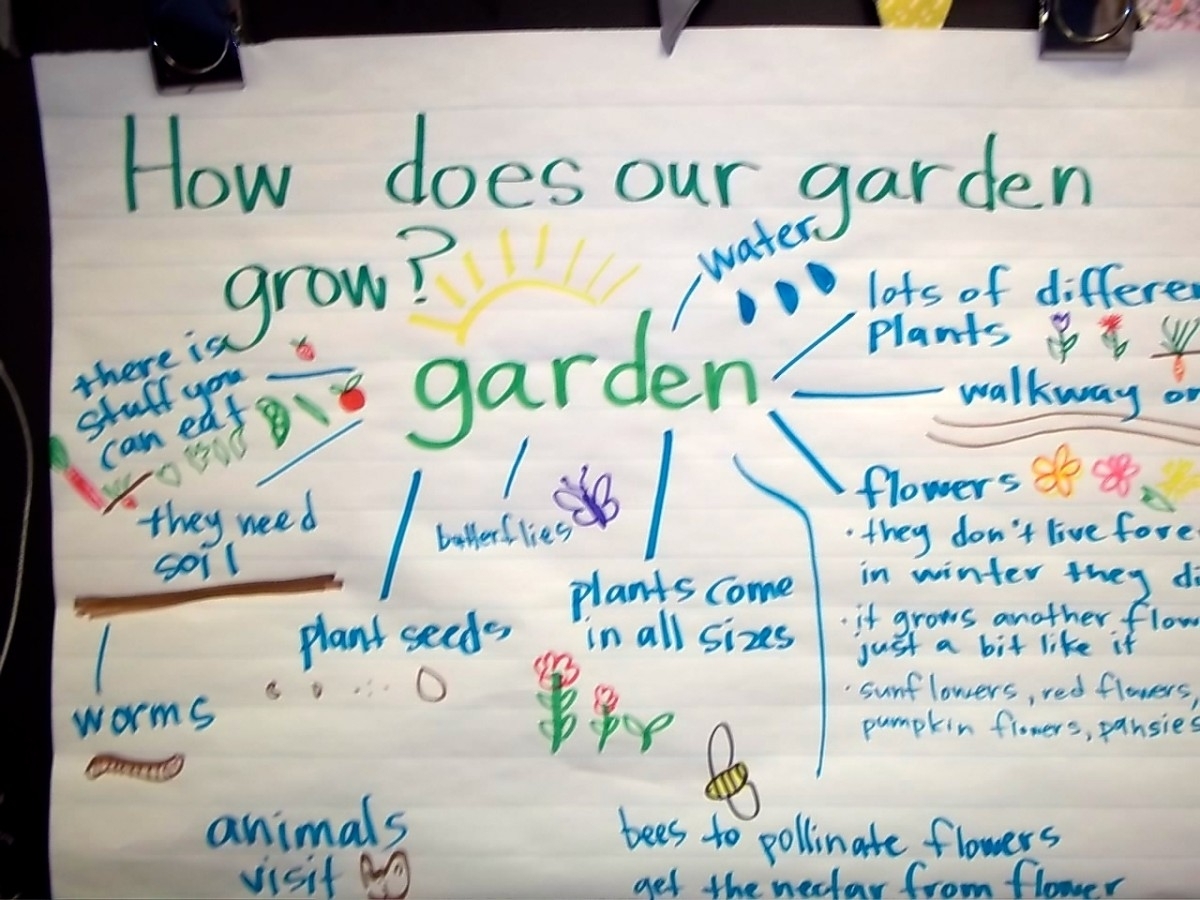 How does our garden
grow?
garden
water
lots of differe
Plants
walkway
flowers
• they don't live fore
in winter they di
• it grows another flow
just a bit like it
• sunflowers, red flowers,
pumpkin flowers, pansies
there is
stuff you
can eat
they need
soil
worms
butterflies
plant seeds
plants come
in all sizes
animals
visit
bees to pollinate flowers
get the nectar from flower